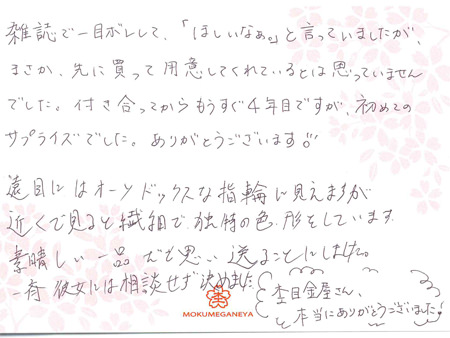 雑誌で一目ボレして、「ほしいなぁ。」と言っていましたが、
まさか、先に買って用意してくれているとは思っていません
でした。付き合ってからもうすぐ4年目ですが、初めての
サプライズでした。ありがとうございます!!
遠目にはオーソドックスな指輪に見えますが
近くで見ると繊細で、独特の色、形をしています。
素晴しい一品だと思い、送ることにしました。
一斉 彼女には相談せず決めました
杢目金屋さん、
本当にありがとうございました!
MOKUMEGANEYA